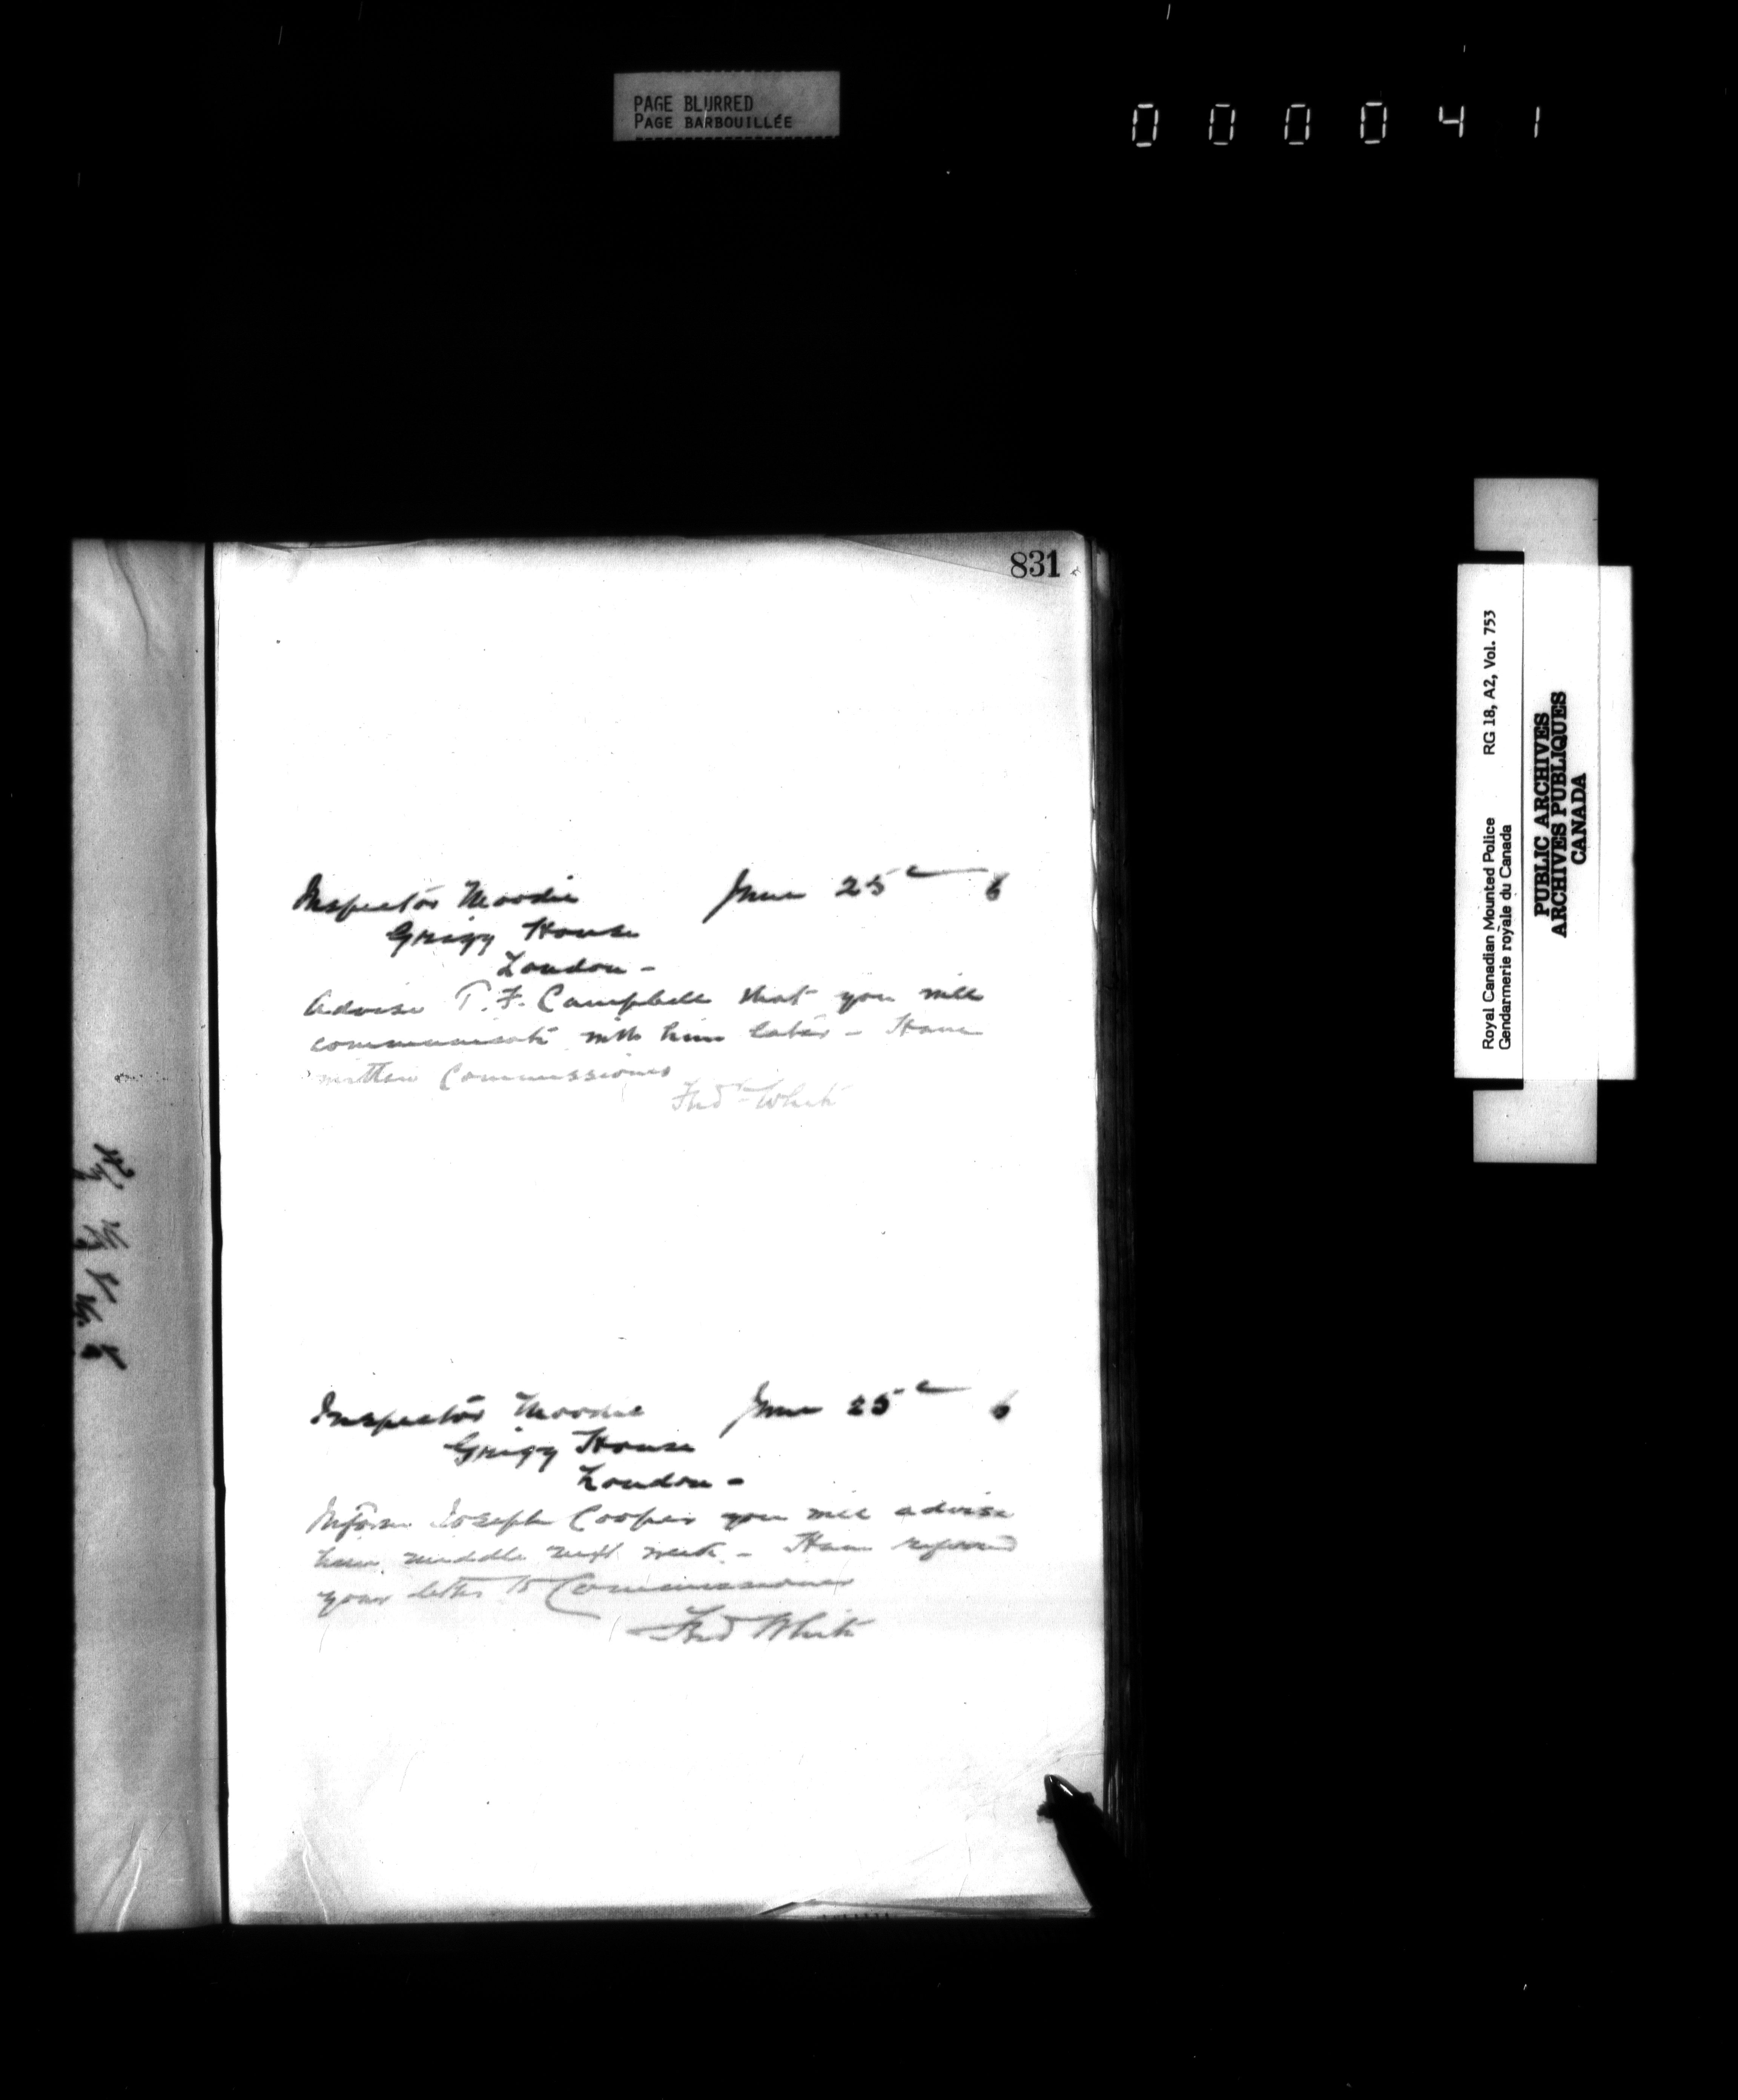 PAGE BLURRED
PAGE BARBOUILLÉE
000041
831
Inspector Moodie June 25 6
Grigg House
London -
Advise T. F. Campbell that you will
communicate with him later - Have
written Commissioner
Fred White
Inspector Moodie June 25 6
Grigg House
London -
Inform Joseph Cooper you will advise
him middle next week - Have referred
your letter to Commissioner
Fred White
Royal Canadian Mounted Police RG 18, A2, Vol. 753
Gendarmerie royale du Canada
PUBLIC ARCHIVES
ARCHIVES PUBLIQUES
CANADA